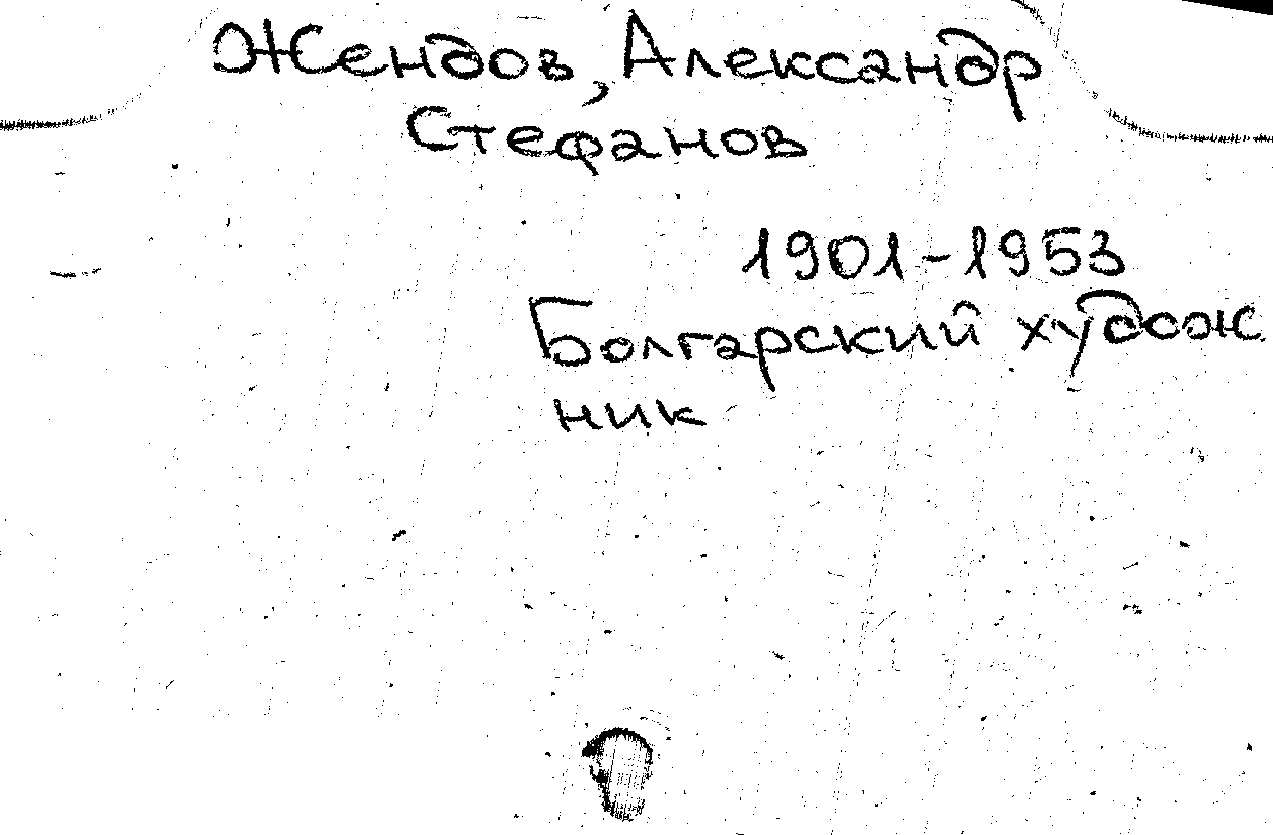 Жендов, Александр
Стефанов
1901-1953
Болгарский худож
ник